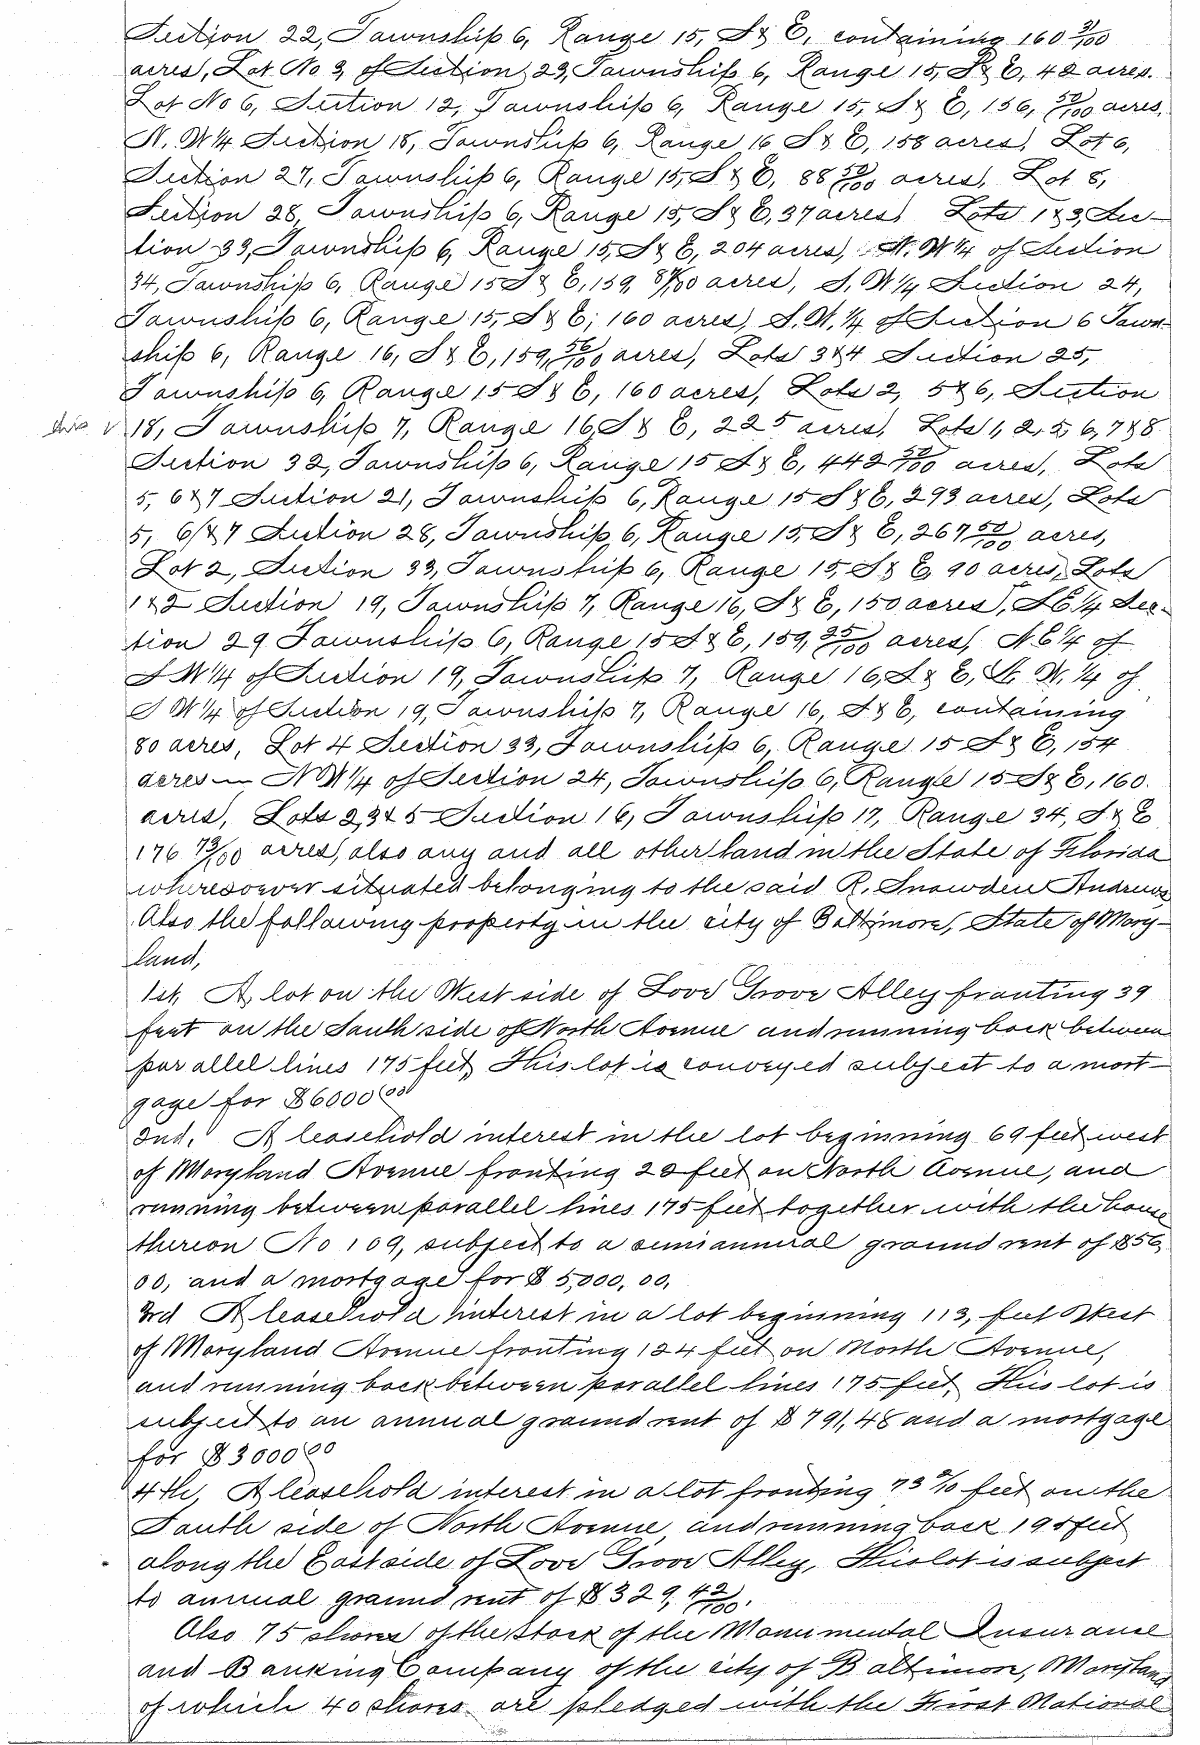 Section 22, Township 6, Range 15, S & E, containing 160 31/100
acres, Lot No 3, of Section 23, Township 6, Range 15, S & E, 48 acres.
Lot No 6, Section 12, Township 6, Range 15, S & E, 156, 50/100 acres,
N. W 1/4 Section 18, Township 6, Range 16 S & E, 158 acres, Lot 6,
Section 27, Township 6, Range 15, S & E, 88 50/100 acres, Lot 8,
Section 28, Township 6, Range 15, S & E, 37 acres, Lots 1 & 3, Sec-
tion 33, Township 6, Range 15, S & E, 204 acres, N. W 1/4 of Section
34, Township 6, Range 15 S & E, 159, 84/100 acres, S. W 1/4 Section 24,
Township 6, Range 15, S & E, 160 acres, S. W. 1/4 of Section 6 Town-
ship 6, Range 16, S & E, 159, 56/100 acres, Lots 3 & 4 Section 25,
Township 6, Range 15 S & E, 160 acres, Lots 2, 5 & 6, Section
18, Township 7, Range 16, S & E, 225 acres, Lots 1, 2, 5, 6, 7 & 8
Section 32, Township 6, Range 15 S & E, 442 50/100 acres, Lots
5, 6 & 7 Section 21, Township 6, Range 15 S & E, 293 acres, Lots
5, 6 & 7 Section 28, Township 6, Range 15, S & E, 267 50/100 acres,
Lot 2, Section 33, Township 6, Range 15, S & E, 90 acres, Lots
1 & 2 Section 19, Township 7, Range 16, S & E, 150 acres, S E 1/4 Sec-
tion 29 Township 6, Range 15 S & E, 159, 25/100 acres, N. E 1/4 of
S W 1/4 of Section 19, Township 7, Range 16, S & E, W. 1/4 of
S W 1/4 of Section 19, Township 7, Range 16, S & E, containing
80 acres, Lot 4 Section 33, Township 6, Range 15 S & E, 154
acres — N W 1/4 of Section 24, Township 6, Range 15 S & E, 160.
acres, Lots 2, 3 & 5 Section 16, Township 17, Range 34, S & E
176 73/100 acres, also any and all other land in the State of Florida
wheresoever situated belonging to the said R. Snowden Andrews
Also the following property in the city of Baltimore, State of Mary-
land,
1st, A lot on the West side of Love Grove Alley fronting 39
feet on the South side of North Avenue and running back between
parallel lines 175 feet, This lot is conveyed subject to a mort-
gage for $6000 00
2nd. A leasehold interest in the lot beginning 69 feet west
of Maryland Avenue fronting 22 feet on North Avenue, and
running between parallel lines 175 feet together with the house
thereon No 109, subject to a semiannual ground rent of $56,
00, and a mortgage for $5,000,00,
3rd A leasehold interest in a lot beginning 113, feet West
of Maryland Avenue fronting 124 feet on North Avenue,
and running back between parallel lines 175 feet, This lot is
subject to an annual ground rent of $791,48 and a mortgage
for $3000 00
4th, A leasehold interest in a lot fronting 73 2/10 feet on the
South side of North Avenue and running back 195 feet
along the East side of Love Grove Alley, This lot is subject
to annual ground rent of $329, 42/100.
Also 75 shares of the stock of the Monumental Insurance
and Banking Company of the city of Baltimore, Maryland
of which 40 shares are pledged with the First National